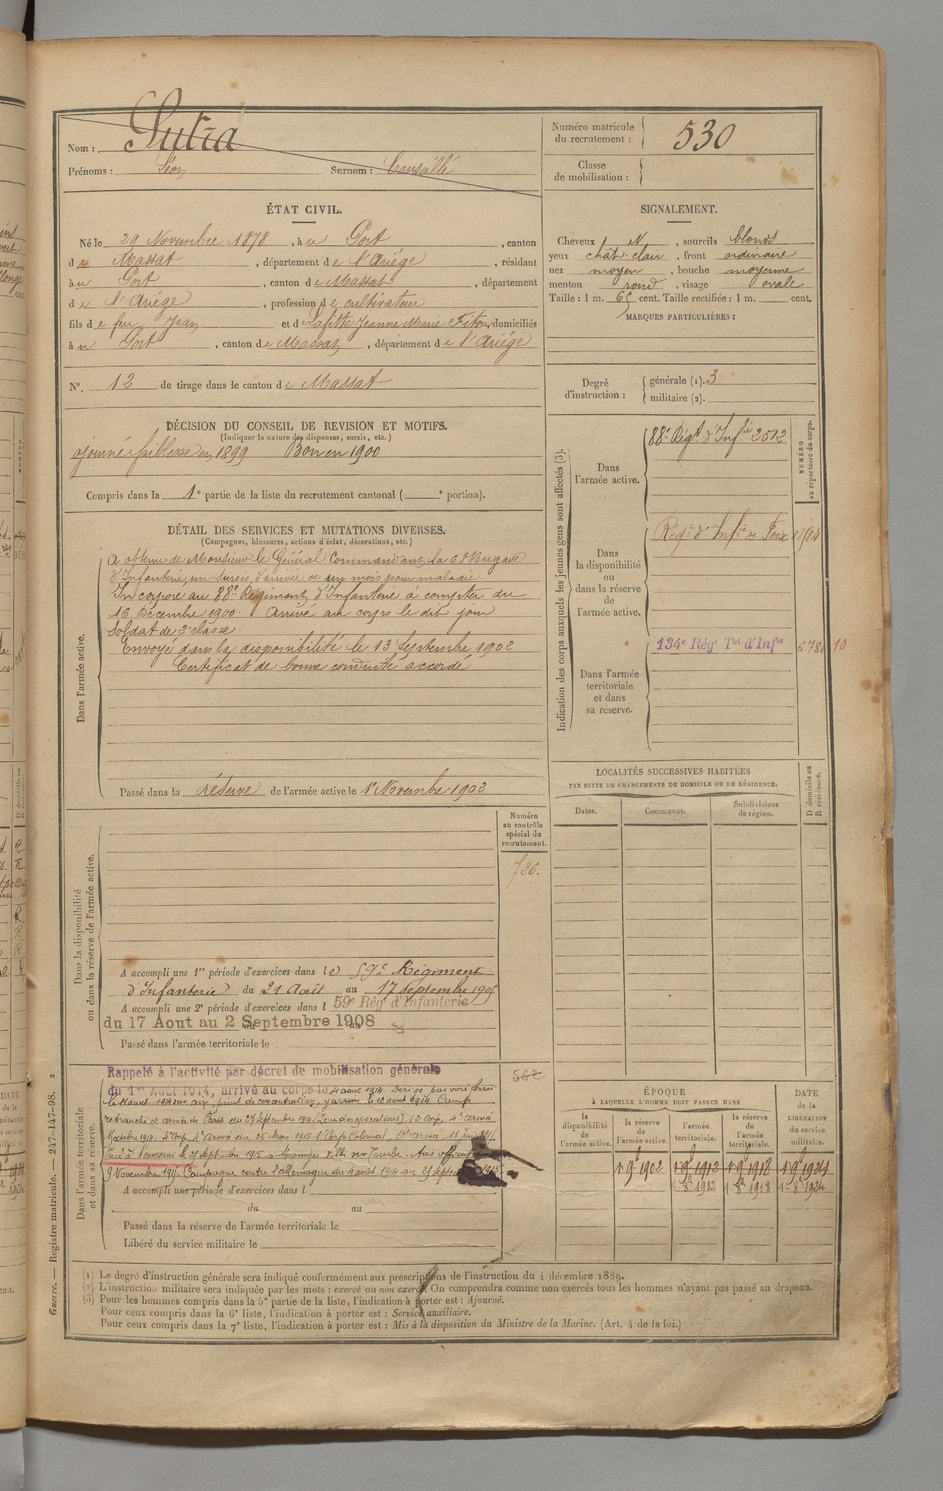 Nom : Sutra
Prénoms : Léon Surnom :
Numéro matricule du recrutement : 530
Classe de mobilisation :
ÉTAT CIVIL.
Né le 29 Novembre 1878, à Port, canton
de Massat, département de l'Ariége, résidant
à Port, canton de Massat, département
de l'Ariége, profession de cultivateur
fils de feu Jean et de Lafitte Jeanne Marie, domiciliés
à Port, canton de Massat, département de l'Ariége
N° 12 de tirage dans le canton de Massat
SIGNALEMENT.
Cheveux N, sourcils blonds
yeux chât. clair, front ordinaire
nez moyen, bouche moyenne
menton rond, visage ovale
Taille : 1 m. 65 cent. Taille rectifiée : 1 m. cent.
MARQUES PARTICULIÈRES :
Degré d'instruction : générale (1). 3
militaire (2).
DÉCISION DU CONSEIL DE REVISION ET MOTIFS.
(Indiquer la nature des dispenses, sursis, etc.)
ajourné faiblesse en 1899 Bon en 1900
Compris dans la 1e partie de la liste du recrutement cantonal ( e portion).
DÉTAIL DES SERVICES ET MUTATIONS DIVERSES.
(Campagnes, blessures, actions d'éclat, décorations, etc.)
Dans l'armée active.
A obtenu de Monsieur le Général Commandant la 68e Brigade
d'Infanterie, un sursis d'arrivée de un mois pour maladie.
Incorporé au 88e Régiment d'Infanterie à compter du
16 Décembre 1900. Arrivé au corps le dit jour
soldat de 2e classe.
Envoyé dans la disponibilité le 13 Septembre 1902
Certificat de bonne conduite accordé
Passé dans la réserve de l'armée active le 1er Novembre 1902
Indication des corps auxquels les jeunes gens sont affectés (3).
NUMÉRO au répertoire du corps.
Dans l'armée active.
88e Régt d'Infie 2512
Dans la disponibilité ou dans la réserve de l'armée active.
Regt d'Infie de Foix
Dans l'armée territoriale et dans sa réserve.
134e Régt Tal d'Infie
10
LOCALITÉS SUCCESSIVES HABITÉES
PAR SUITE DE CHANGEMENTS DE DOMICILE OU DE RÉSIDENCE.
Dates. Communes. Subdivisions de région. D domicile ou R résidence.
Dans la disponibilité ou dans la réserve de l'armée active.
Numéro au contrôle spécial du recrutement.
726.
A accompli une 1re période d'exercices dans le 59e Régiment
d'Infanterie du 21 Août au 17 septembre 1905
A accompli une 2e période d'exercices dans l 59e Rég d'Infanterie
du 17 Aout au 2 Septembre 1908
Passé dans l'armée territoriale le
Dans l'armée territoriale et dans sa réserve.
Rappelé à l'activité par décret de mobilisation générale
du 1er Août 1914, arrivé au corps le 4 aout 1914. Dirigé par voie ferrée
retranché et armée de Paris du 27 Septembre 1914
9 Novembre 1915 Campagne contre l'allemagne du 4 août 1914 au 25 Septembre 1915
A accompli une période d'exercices dans l
du au
Passé dans la réserve de l'armée territoriale le
Libéré du service militaire le
ÉPOQUE
À LAQUELLE L'HOMME DOIT PASSER DANS
DATE de la LIBÉRATION du service militaire.
la disponibilité de l'armée active. la réserve de l'armée active. l'armée territoriale. la réserve de l'armée territoriale.
1 9bre 1902 1 9bre 1912 1 9bre 1918 1 9bre 1924
1 8bre 1912 1 8bre 1918 1 8bre 1924
(1) Le degré d'instruction générale sera indiqué conformément aux prescriptions de l'instruction du 4 décembre 1889.
(2) L'instruction militaire sera indiquée par les mots : exercé ou non exercé. On comprendra comme non exercés tous les hommes n'ayant pas passé au drapeau.
(3) Pour les hommes compris dans la 5e partie de la liste, l'indication à porter est : Ajourné.
Pour ceux compris dans la 6e liste, l'indication à porter est : Service auxiliaire.
Pour ceux compris dans la 7e liste, l'indication à porter est : Mis à la disposition du Ministre de la Marine. (Art. 4 de la loi.)
Guerre. — Registre matricule. — 217-147-98.